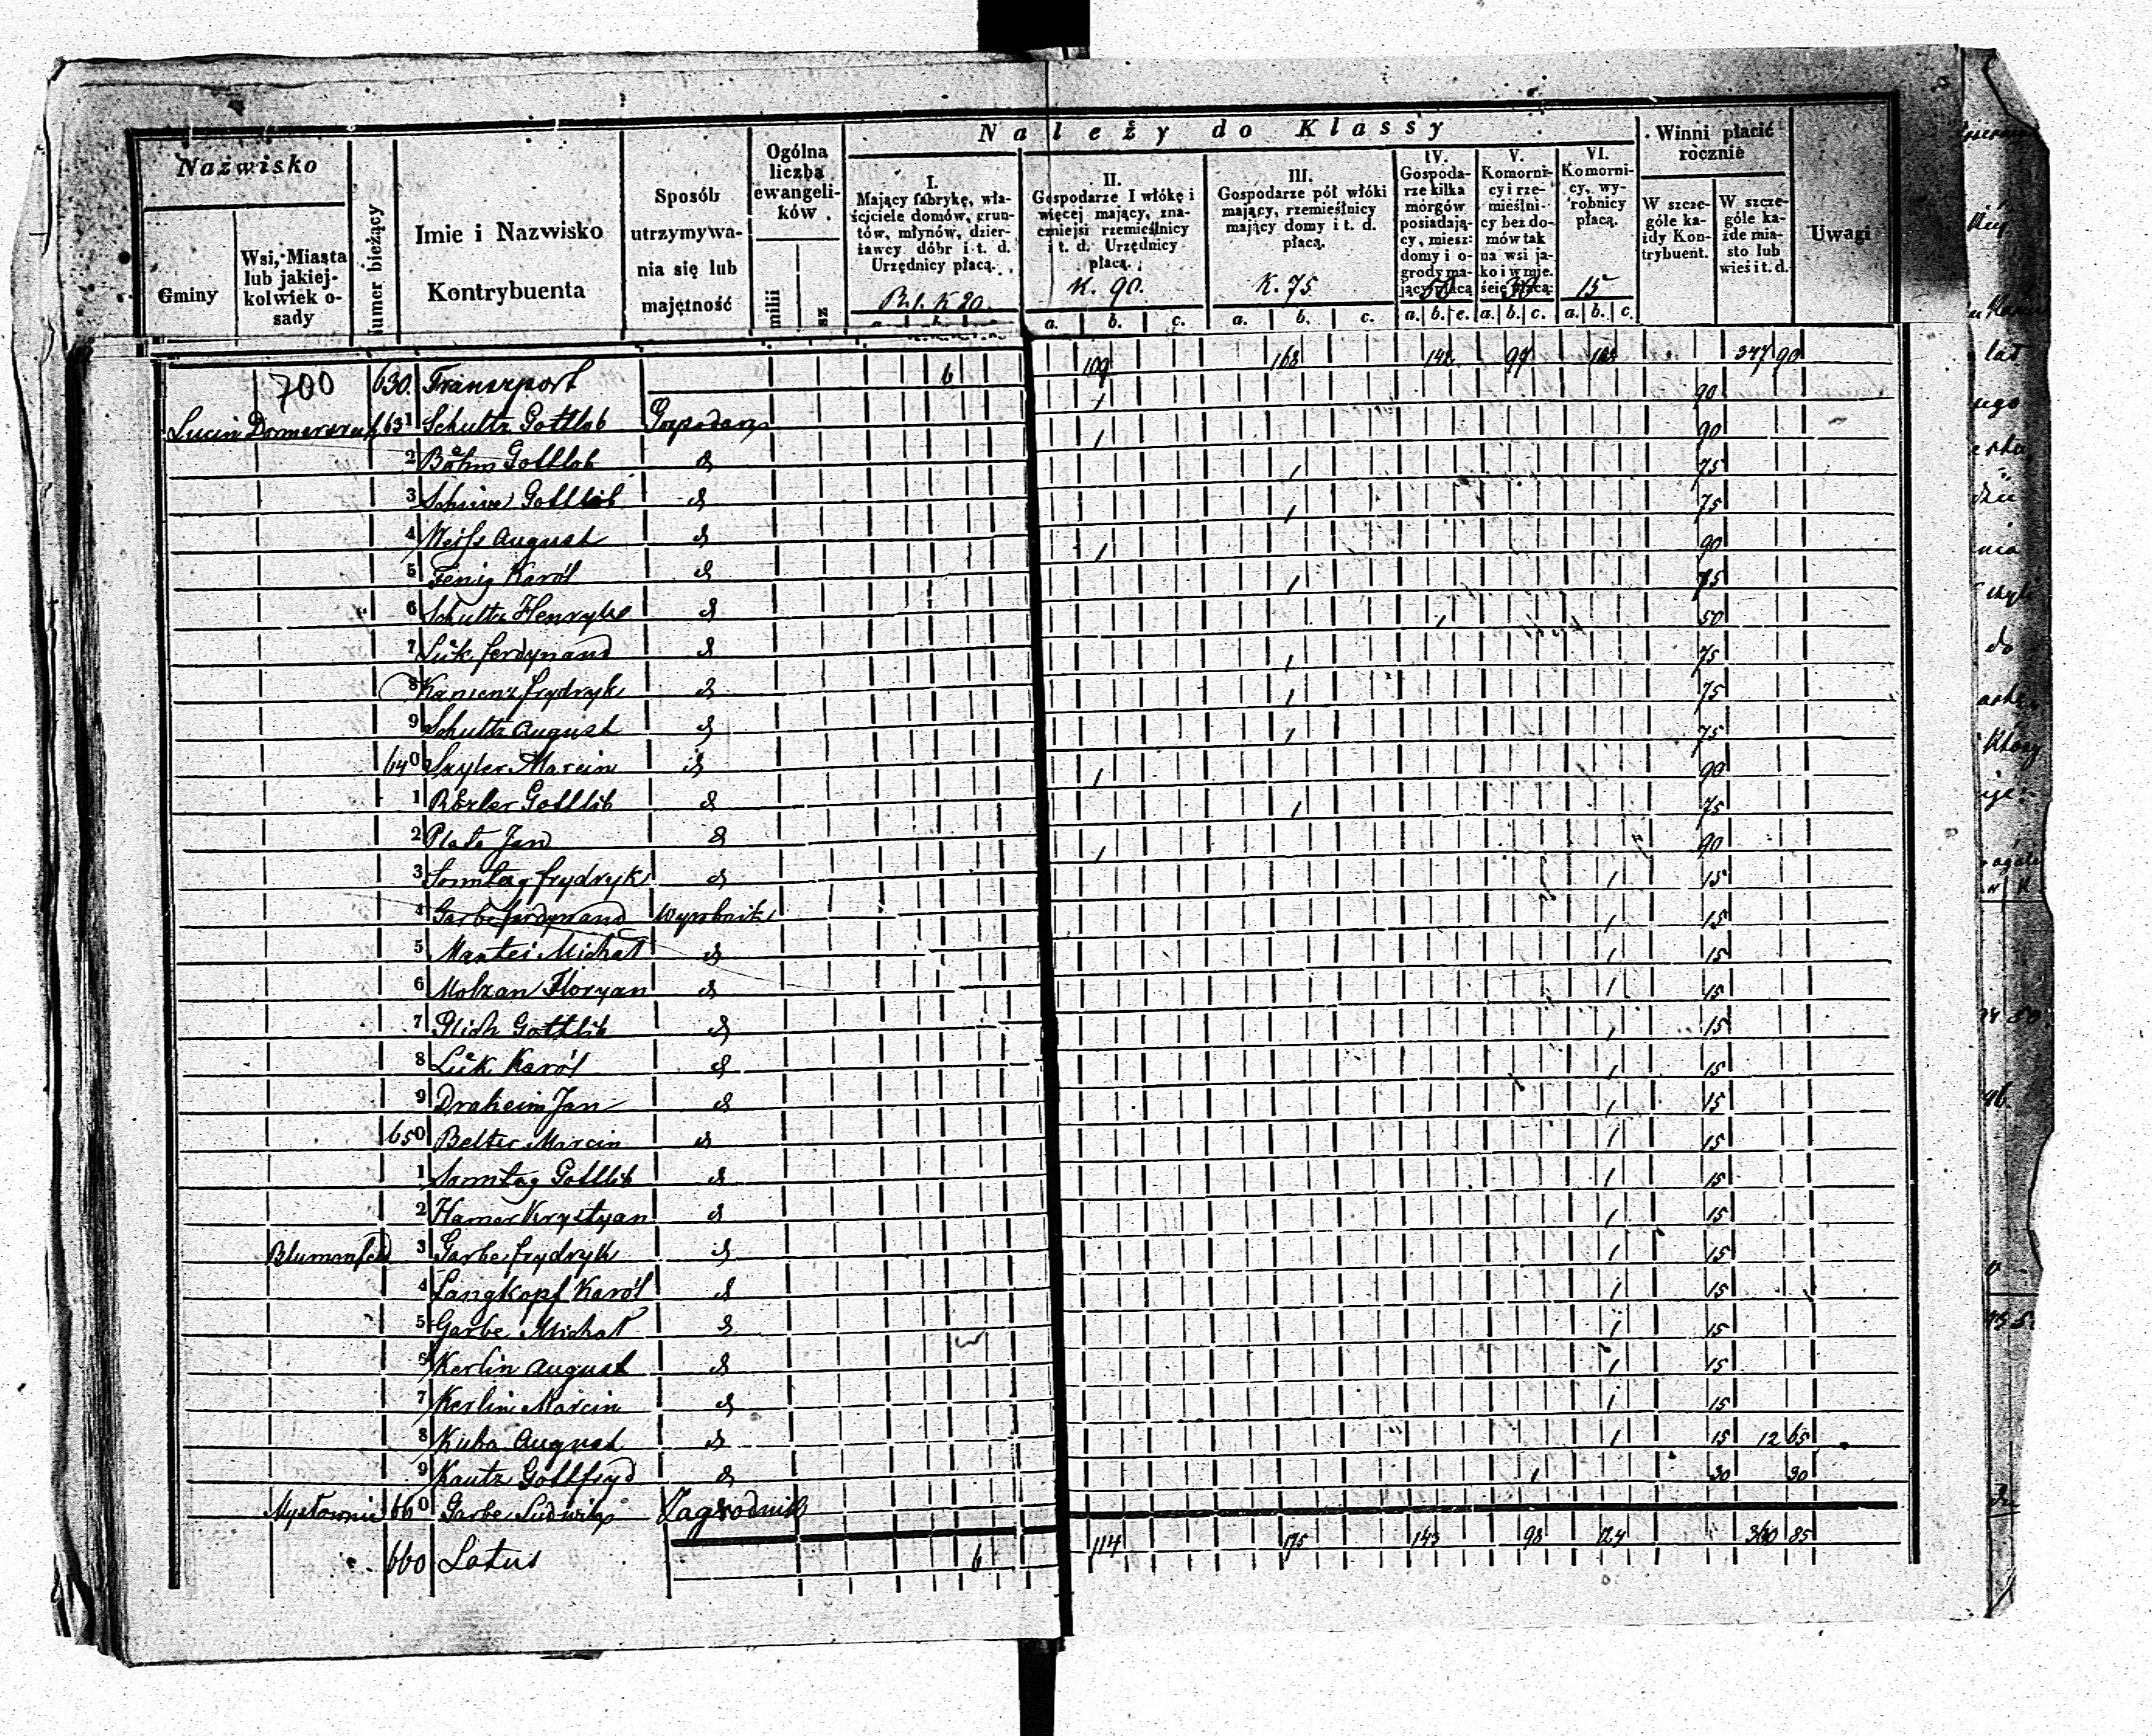 Należy do Klassy
Nazwisko
Gminy
Wsi, Miasta lub jakiejkolwiek osady
numer bieżący
Imie i Nazwisko Kontrybuenta
Sposób utrzymywania się lub majętność
Ogólna liczba ewangelików
I. Mający fabrykę, właściciele domów, gruntów, młynów, dzierżawcy dóbr i t. d. Urzędnicy płacą.
R. 1. K 20.
II. Gospodarze 1 włókę i więcej mający, znaczniejsi rzemieślnicy i t. d. Urzędnicy płacą.
K. 90.
III. Gospodarze pół włóki mający, rzemieślnicy mający domy i t. d. płacą.
K. 75
IV. Gospodarze kilka morgów posiadający, miesz: domy i ogrody mający płacą
50
V. Komornicy i rzemieślnicy bez domów tak na wsi jako i w mieście płacą:
30
VI. Komornicy, wyrobnicy płacą.
15
Winni płacić ròcznie
W szczególe każdy Kontrybuent.
W szczególe każde miasto lub wieś i t. d.
Uwagi
a. b. c. a. b. c. a. b. c. a. b. c. a. b. c.
700 630. Transport 6 109 168 142 97 108 347 90
Lucin 631 Schultz Gottlob Gospodarz 1 90
2 Böhm Gottlob d 1 90
3 Gottlieb d 1 75
4 Weiss August d 1 75
5 Fenig Karól d 1 90
6 Schultz Henryk d 1 75
7 Lük Ferdynand d 1 50
8 Kanienz Frydryk d 1 75
9 Schultz August d 1 75
640 Sayler Marcin d 1 75
1 Rözler Gottlib d 1 90
2 Plate Jan d 1 75
3 Sonntag Frydryk d 1 90
4 Garbe Ferdynand Wyrobnik 1 15
5 Mantei Michał d 1 15
6 Molzan Floryan d 1 15
7 Plish Gottlib d 1 15
8 Lük Karól d 1 15
9 Draheim Jan d 1 15
650 Belter Marcin d 1 15
1 Sonntag Gottlib d 1 15
2 Hamer Krystyan d 1 15
Blumenfeld 3 Garbe Frydryk d 1 15
4 Langkopf Karól d 1 15
5 Garbe Michał d 1 15
6 Kerlin August d 1 15
7 Kerlin Marcin d 1 15
8 Kuba August d 1 15
9 Kautz Gottfryd d 1 15 12 65
Mysłownie 660 Garbe Ludwik Zagrodnik 1 30 30
660 Latus 6 114 175 143 98 124 360 85